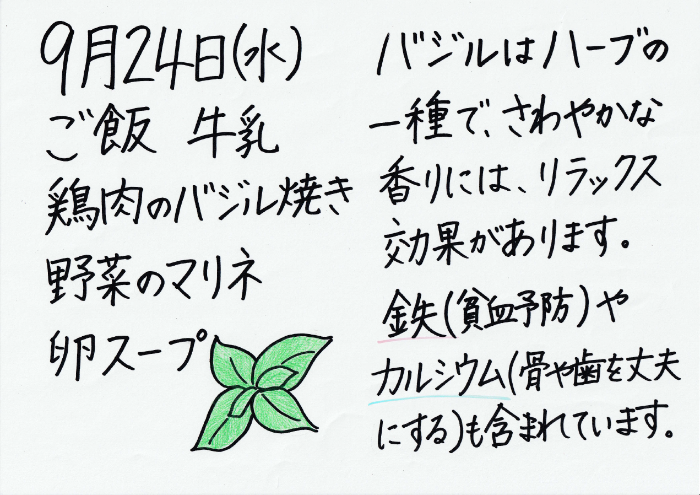 9月24日(水)
ご飯 牛乳
鶏肉のバジル焼き
野菜のマリネ
卵スープ
バジルはハーブの
一種で、さわやかな
香りには、リラックス
効果があります。
鉄(貧血予防)や
カルシウム(骨や歯を丈夫
にする)も含まれています。